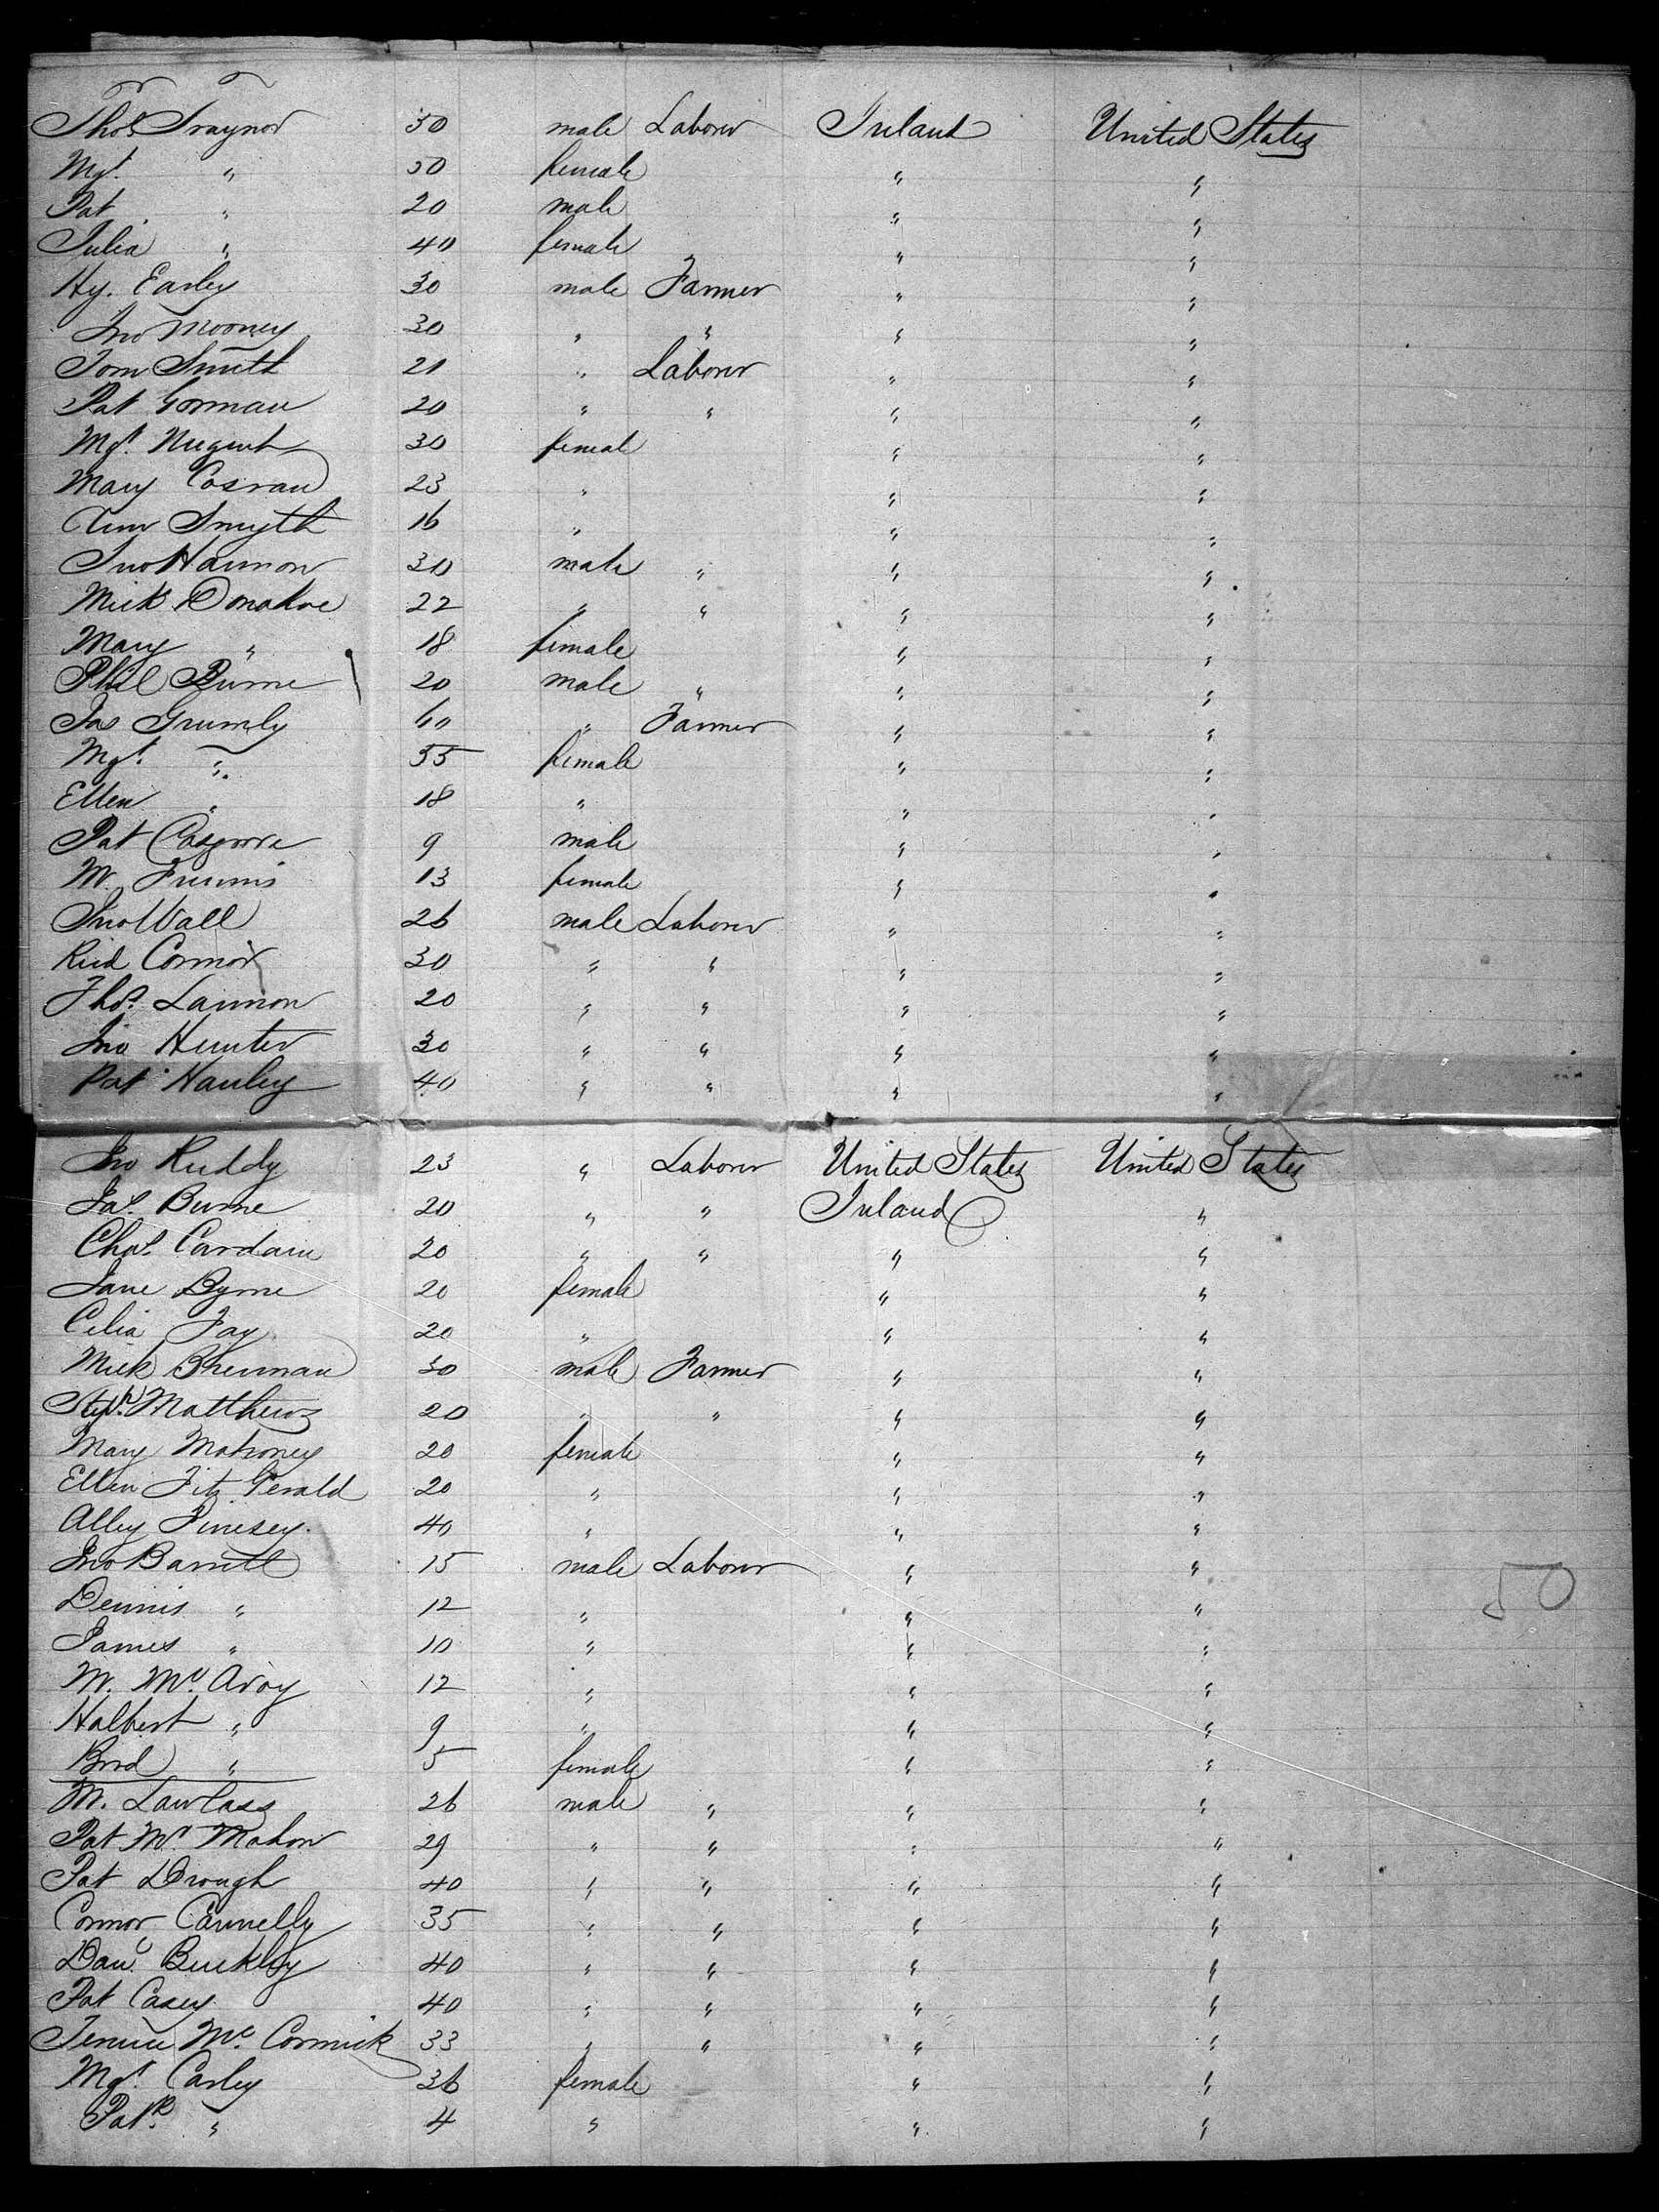 Thos. Traynor 50 male Laborer Ireland United States
Mgt. " 50 female " "
Pat " 20 male " "
Julia " 40 female " "
Hy. Earley 30 male Farmer " "
Jno Mooney 30 " " " "
Tom Smith 21 " Laborer " "
Pat Gorman 20 " " " "
Mgt. Nugent 30 female " "
Mary 23 " " "
Ann Smyth 16 " " "
Jno Hannon 30 male " " "
Mick Donahoe 22 " " " "
Mary " 18 female " "
Phil Burne 20 male " " "
Jas Grumly 60 " Farmer " "
Mgt. " 55 female " "
Ellen " 18 " " "
Pat Cosgrove 9 male " "
M. 13 female " "
Jno Wall 26 male Laborer " "
Ricd Connor 30 " " " "
Thos. Lannon 20 " " " "
Jno Hunter 30 " " " "
Pat Hanley 40 " " " "
Jno Ruddy 23 " Laborer United States United States
Jas. Burne 20 " " Ireland "
Chas. 20 " " " "
Jane Byrne 20 female " "
Celia Fay 20 " " "
Mick Brennan 30 male Farmer " "
Steph. Matthews 20 " " " "
Mary Mahoney 20 female " "
Ellen Fitz Gerald 20 " " "
Alley 40 " " "
Jno Barrett 15 male Laborer " "
Dennis " 12 " " "
James " 10 " " "
M. Mc. Avoy 12 " " "
Halbert " 9 " " "
Brd " 5 female " "
M. Lawlass 26 male " " "
Pat Mc. Mahon 29 " " " "
Pat Drough 40 " " " "
Connor Cannelly 35 " " " "
Danl. Buckley 40 " " " "
Pat Casey 40 " " " "
Terence Mc. Cormick 33 " " " "
Mgt. Carley 36 female " "
Patk. " 4 " " "
50